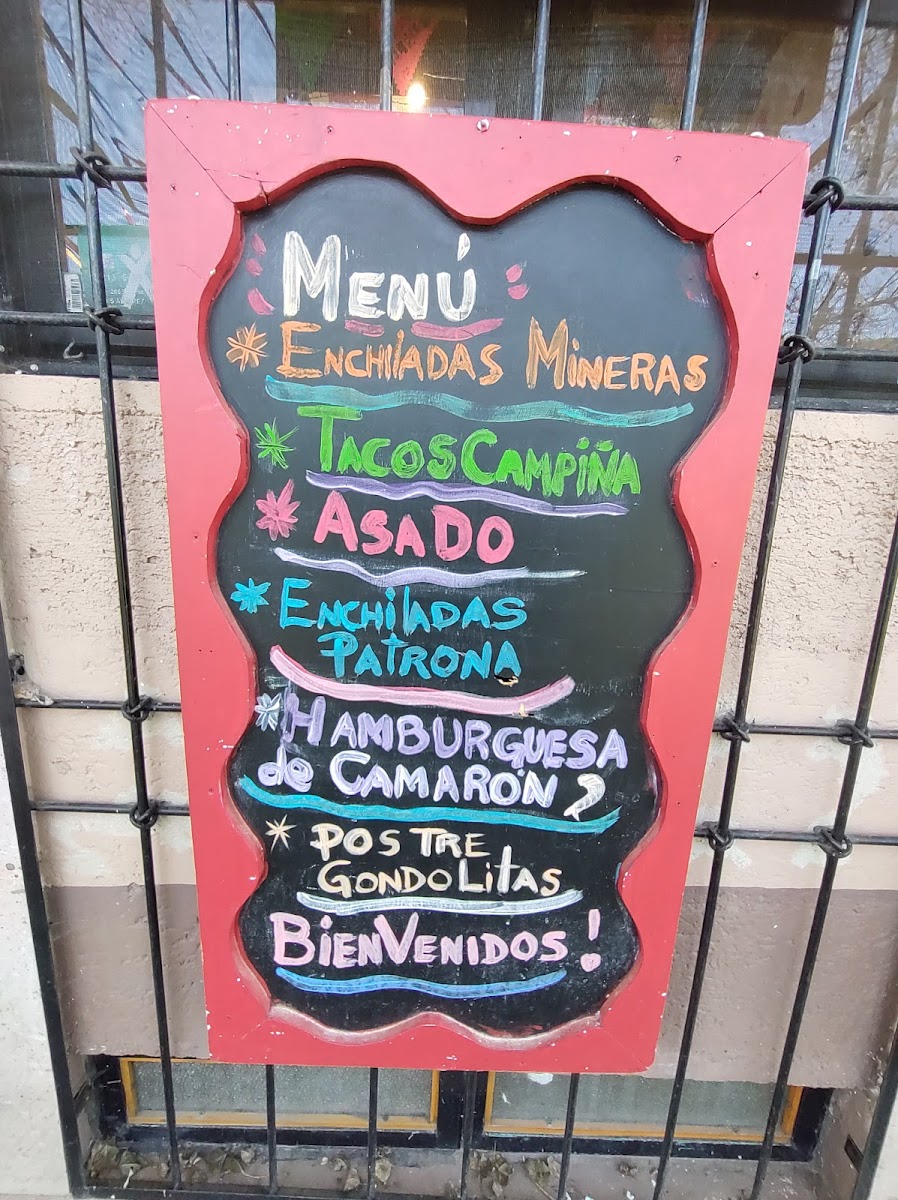 MENÚ
* ENCHILADAS MINERAS
* TACOS CAMPIÑA
* ASADO
* ENCHILADAS
PATRONA
* HAMBURGUESA
de CAMARÓN
* POSTRE
GONDOLITAS
BIENVENIDOS!